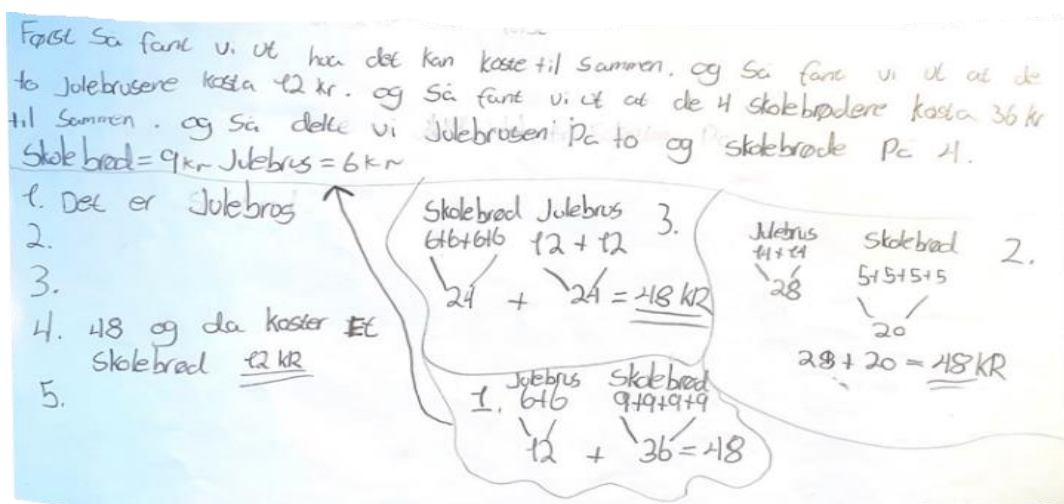 Først så fant vi ut hva det kan koste til sammen. og så fant vi ut at de
to Julebrusene kosta 12 kr. og så fant vi ut at de 4 skolebrødere kosta 36 kr
til sammen. og så delte vi Julebrusen på to og skolebrøde på 4.
Skolebrød = 9 kr Julebrus = 6 kr
1. Det er Julebros
2.
3.
4. 48 og da koster Et
Skolebrød 12 kR
5.
Skolebrød Julebrus 3.
6+6+6+6 12 + 12
24 + 24 = 48 kR
Julebrus Skolebrød 2.
14+14 5+5+5+5
28
20
28 + 20 = 48 KR
Julebrus Skolebrød
1. 6+6 9+9+9+9
12 + 36 = 48